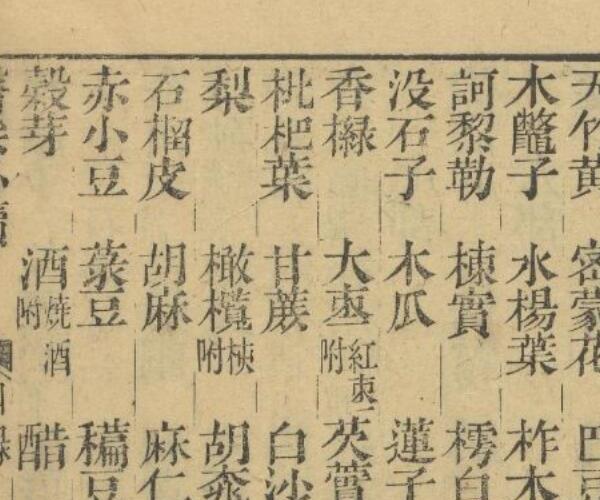 天竹黄 密蒙花 巴豆
木鼈子 水楊葉 柞木
訶黎勒 楝實 樗白
没石子 木瓜 蓮子
香櫞 大棗 紅棗附 芡
枇杷葉 甘蔗 白沙
梨 橄欖 附 胡
石榴皮 胡麻 麻仁
赤小豆 菉豆 穭豆
穀芽 酒 燒酒附 醋